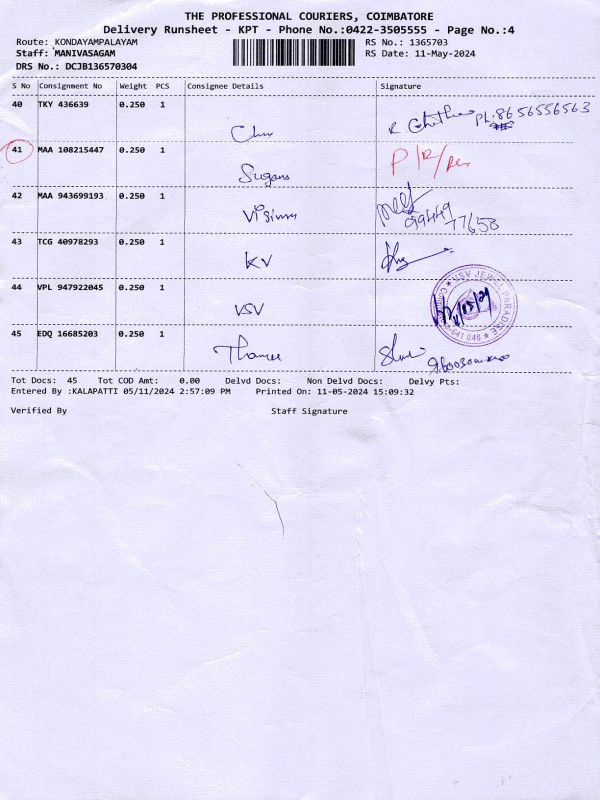 THE PROFESSIONAL COURIERS, COIMBATORE
Delivery Runsheet - KPT - Phone No.:0422-3505555 - Page No.:4
Route: KONDAYAMPALAYAM RS No.: 1365703
Staff: MANIVASAGAM RS Date: 11-May-2024
DRS No.: DCJB136570304
S No Consignment No Weight PCS Consignee Details Signature
40 TKY 436639 0.250 1 R. Ph:8656556563
41 MAA 108215447 0.250 1 Sugans P/R/
42 MAA 943699193 0.250 1 99449
77658
43 TCG 40978293 0.250 1 KV
44 VPL 947922045 0.250 1 VSV VSV JEWEL PARADISE 641 048
45 EDQ 16685203 0.250 1
Tot Docs: 45 Tot COD Amt: 0.00 Delvd Docs: Non Delvd Docs: Delvy Pts:
Entered By :KALAPATTI 05/11/2024 2:57:09 PM Printed On: 11-05-2024 15:09:32
Verified By Staff Signature